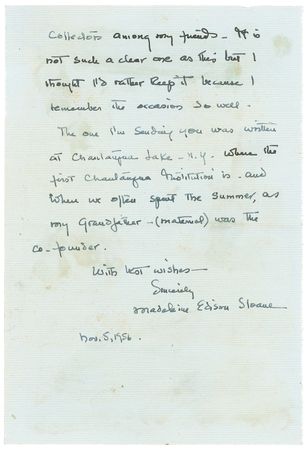 Collectors among my friends - It is
not such a clear one as this but I
thought I'd rather keep it because I
remember the occasion so well.
The one I'm sending you was written
at Chautauqua Lake - N.Y. where the
first Chautauqua Institution is - and
when we often spent the summer, as
my Grandfather - (maternal) was the
co-founder.
With best wishes -
Sincerely
Madeleine Edison Sloane
Nov. 5, 1956